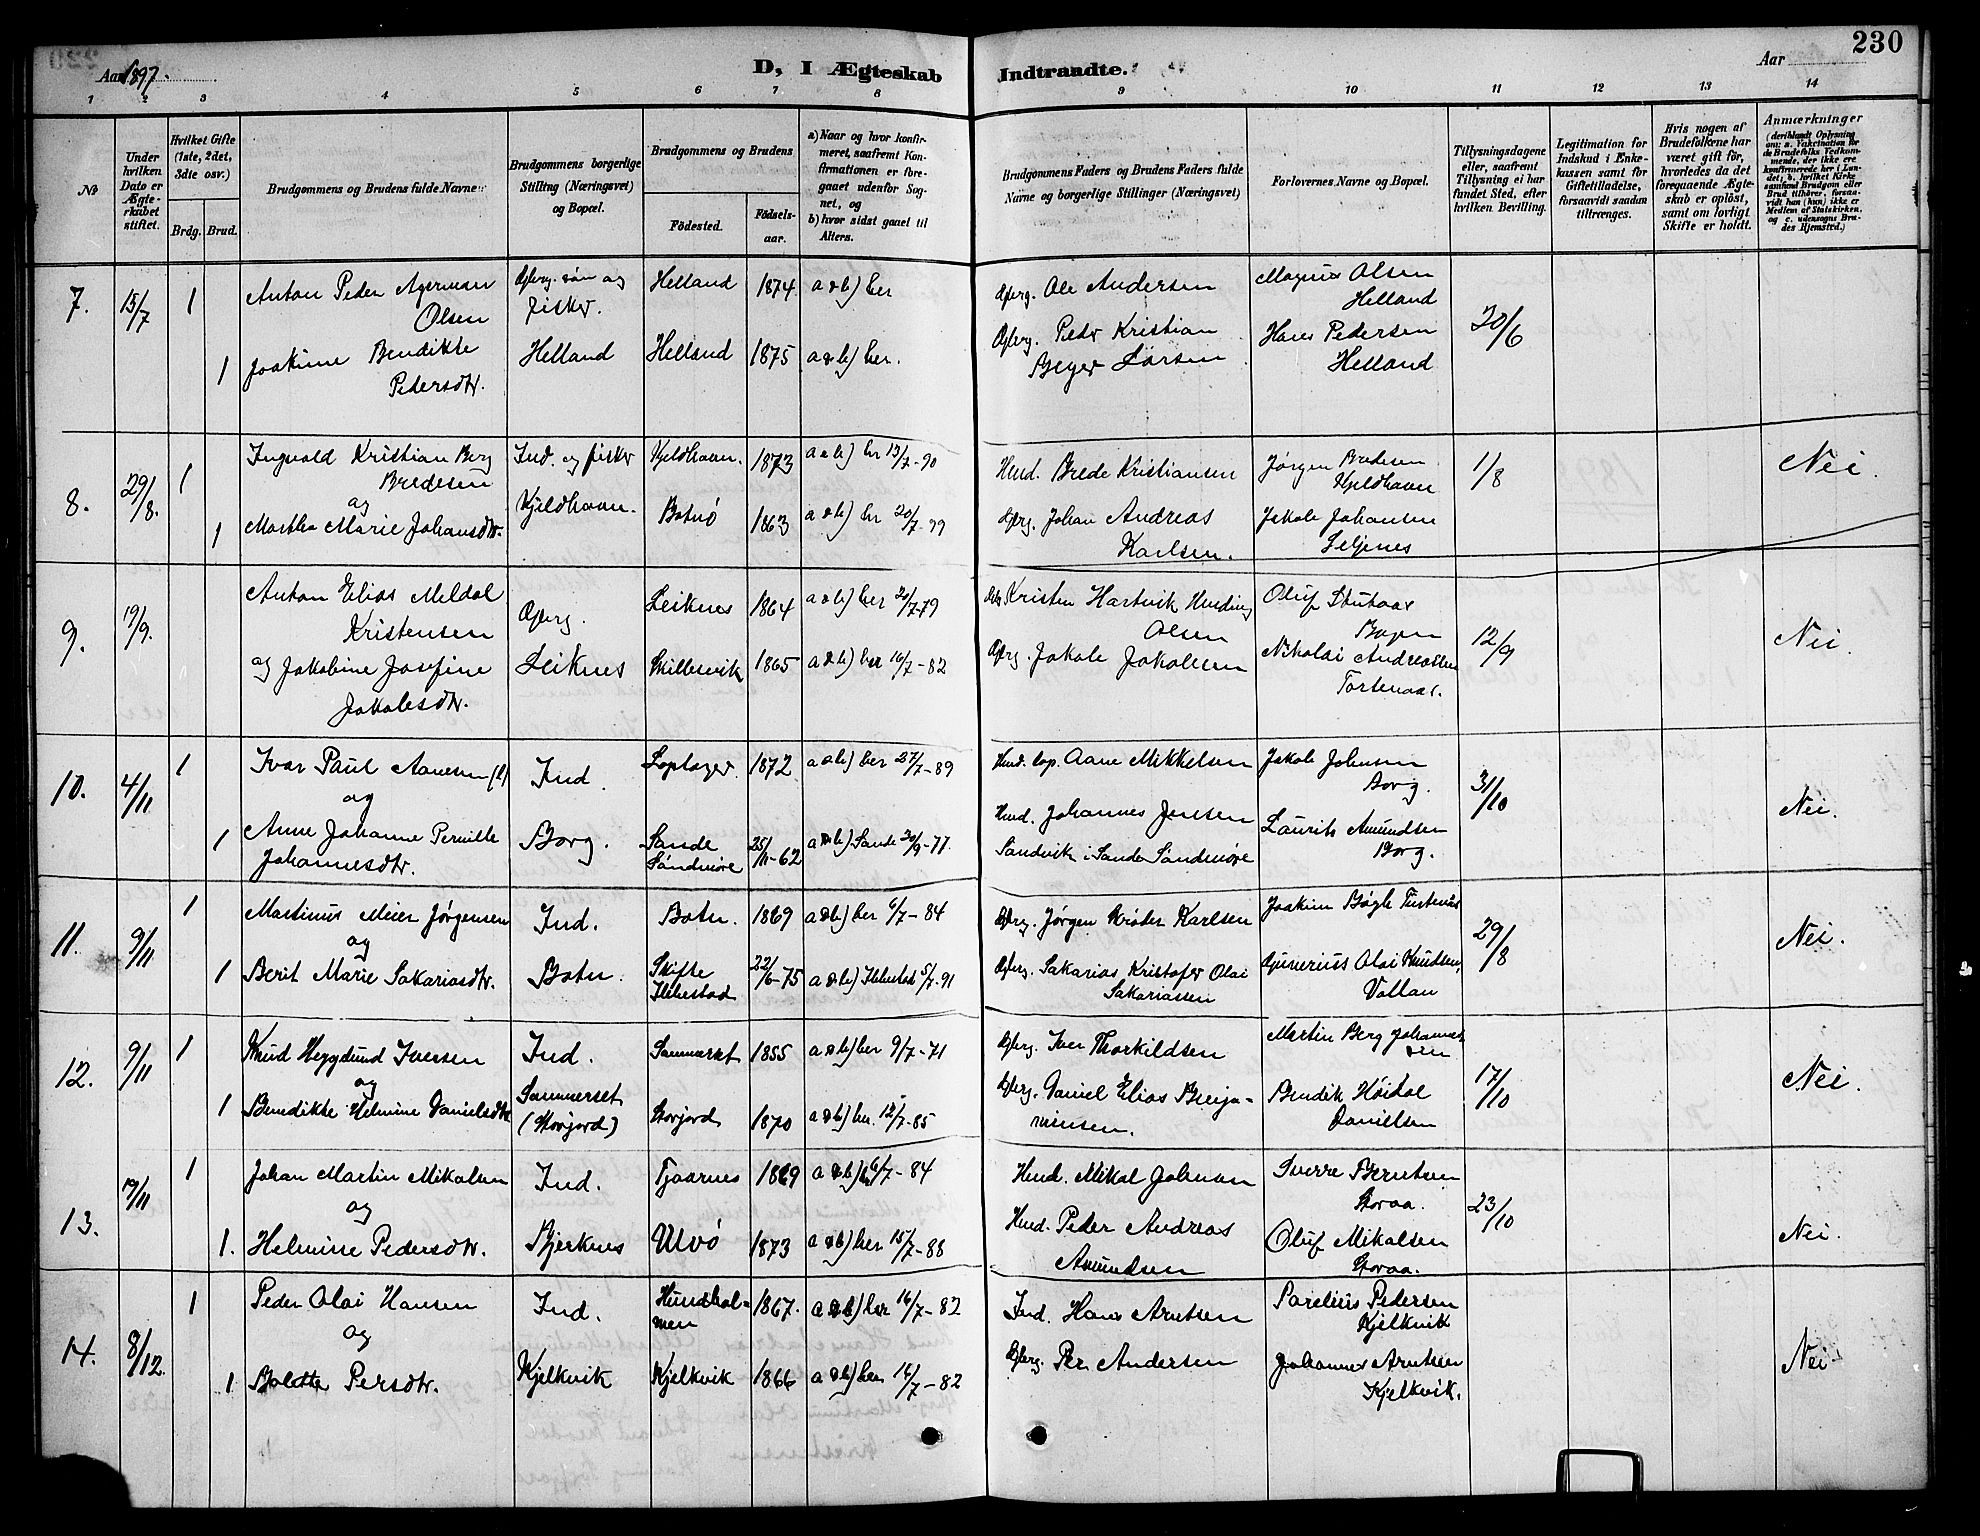 230
Aar 1897.
D, I Ægteskab Indtraadte.
Aar
1 2 3 4 5 6 7 8 9 10 11 12 13 14
No
Under hvilken Dato er Ægteskabet stiftet.
Hvilket Gifte (1ste, 2det, 3die osv.)
Brdg. Brud.
Brudgommens og Brudens fulde Navne
Brudgommens borgerlige Stilling (Næringsvei) og Bopæl.
Brudgommens og Brudens
Födested.
Födselsaar.
a) Naar og hvor konfirmeret, saafremt Konfirmationen er foregaaet udenfor Sognet, og
b) hvor sidst gaaet til Alters.
Brudgommens Faders og Brudens Faders fulde Navne og borgerlige Stillinger (Næringsvei)
Forlovernes Navne og Bopæl.
Tillysningsdagene eller, saafremt Tillysning ei har fundet Sted, efter hvilken Bevilling.
Legitimation for Indskud i Enkekassen samt for Giftetilladelse, forsaavidt saadan tiltrænges.
Hvis nogen af Brudefolkene har været gift før, hvorledes da det foregaaende Ægteskab er oplöst, samt om lovligt Skifte er holdt.
Anmærkninger
7. 15/7 1 Anton Peder Agerman Olsen Gbrg. søn og fisker. Helland 1874 a & b) her
Gbrg. Ole Andersen Magnus Olsen Helland 20/6
1 Joakime Bendikte Pedersdtr. Helland Helland 1875 a & b) her.
Gbrg. Peder Kristian Beyer Larsen Hans Pedersen Helland
8. 29/8. 1 Ingvald Kristian Berg Bredesen Ind. og fisker Kjeldhavn. 1873 a & b) her 13/7-90
Hmd. Brede Kristiansen Jørgen Bredesen Kjeldhavn 1/8 Nei.
og
1 Martha Marie Johansdtr. Kjeldhavn. Botnø 1863 a & b) her 20/7-79
Gbrg. Johan Andreas Karlsen. Jakob Johansen Seljenes
9. 19/9. Anton Elias Meldal Kristensen Gbrg. Leiknes 1864 a & b) her 20/7-79
Kristen Hartvik Olsen Oluf 12/9 Nei.
og Jakobine Josefine Jakobsdtr. Leiknes Skillesvik 1865 a & b) her 16/7-82
Gbrg. Jakob Jakobsen Nikolai Andreassen
10. 4/11 1 Ivar Paul Aanesen (l) Ind. 1872 a & b) her 27/7-89
Hmd. Aane Mikkelsen Jakob Johnsen Borg. 31/10 Nei.
og
1 Anne Johanne Pernille Johannesdtr. Borg. Sande Søndmøre 25/11-62 a & b) Sande 30/9-77.
Hmd. Johannes Jensen Sandvik i Sande Søndmøre Laurits Amundsen Borg.
11. 9/11 1 Martinus Meier Jørgensen Ind. Botn. 1869 a & b) her 6/7-84
Gbrg. Jørgen Krøder Karlsen Joakim Bøgh 29/8 Nei.
og
1 Berit Marie Sakariasdtr. Botn. Skifte Ibbestad 22/6-75 a & b) Ibbestad 5/7-91
Gbrg. Sakarias Kristofer Olai Sakariassen Gunerius Olai Knudsen, Vollan
12. 9/11 1 Knud Heggelund Iversen Ind. Sommerset 1855 a & b) her 9/7-71
Gbrg. Iver Thorkildsen Martin Berg Johannessen 17/10 Nei.
og
1 Bendikte Helmine Danielsdtr Sommerset (Storjord) Storjord 1870 a & b) her. 12/7-85
Gbrg. Daniel Elias Benjaminsen. Bendik Høidal Danielsen
13. 19/11 1 Johan Martin Mikalsen Ind. Tjaarnes 1869 a & b) 6/7-84
Hmd. Mikal Johnson Sverre Berntsen Storaa. 23/10 Nei.
og
1. Helmine Pedersdtr. Bjerknes Ulvø 1873 a & b) her 15/7-88
Hmd. Peder Andreas Amundsen Oluf Mikalsen Storaa.
14. 8/12. 1 Peder Olai Hansen Ind. Hundholmen 1867. a & b) her 16/7-82
Ind. Hans Arntsen Parelius Pedersen Kjelkvik Nei
og
1 Bolette Persdtr. Kjelkvik Kjelkvik 1866 a & b) her 16/7-82
Gbrg. Per Andersen Johannes Arntsen Kjelkvik.